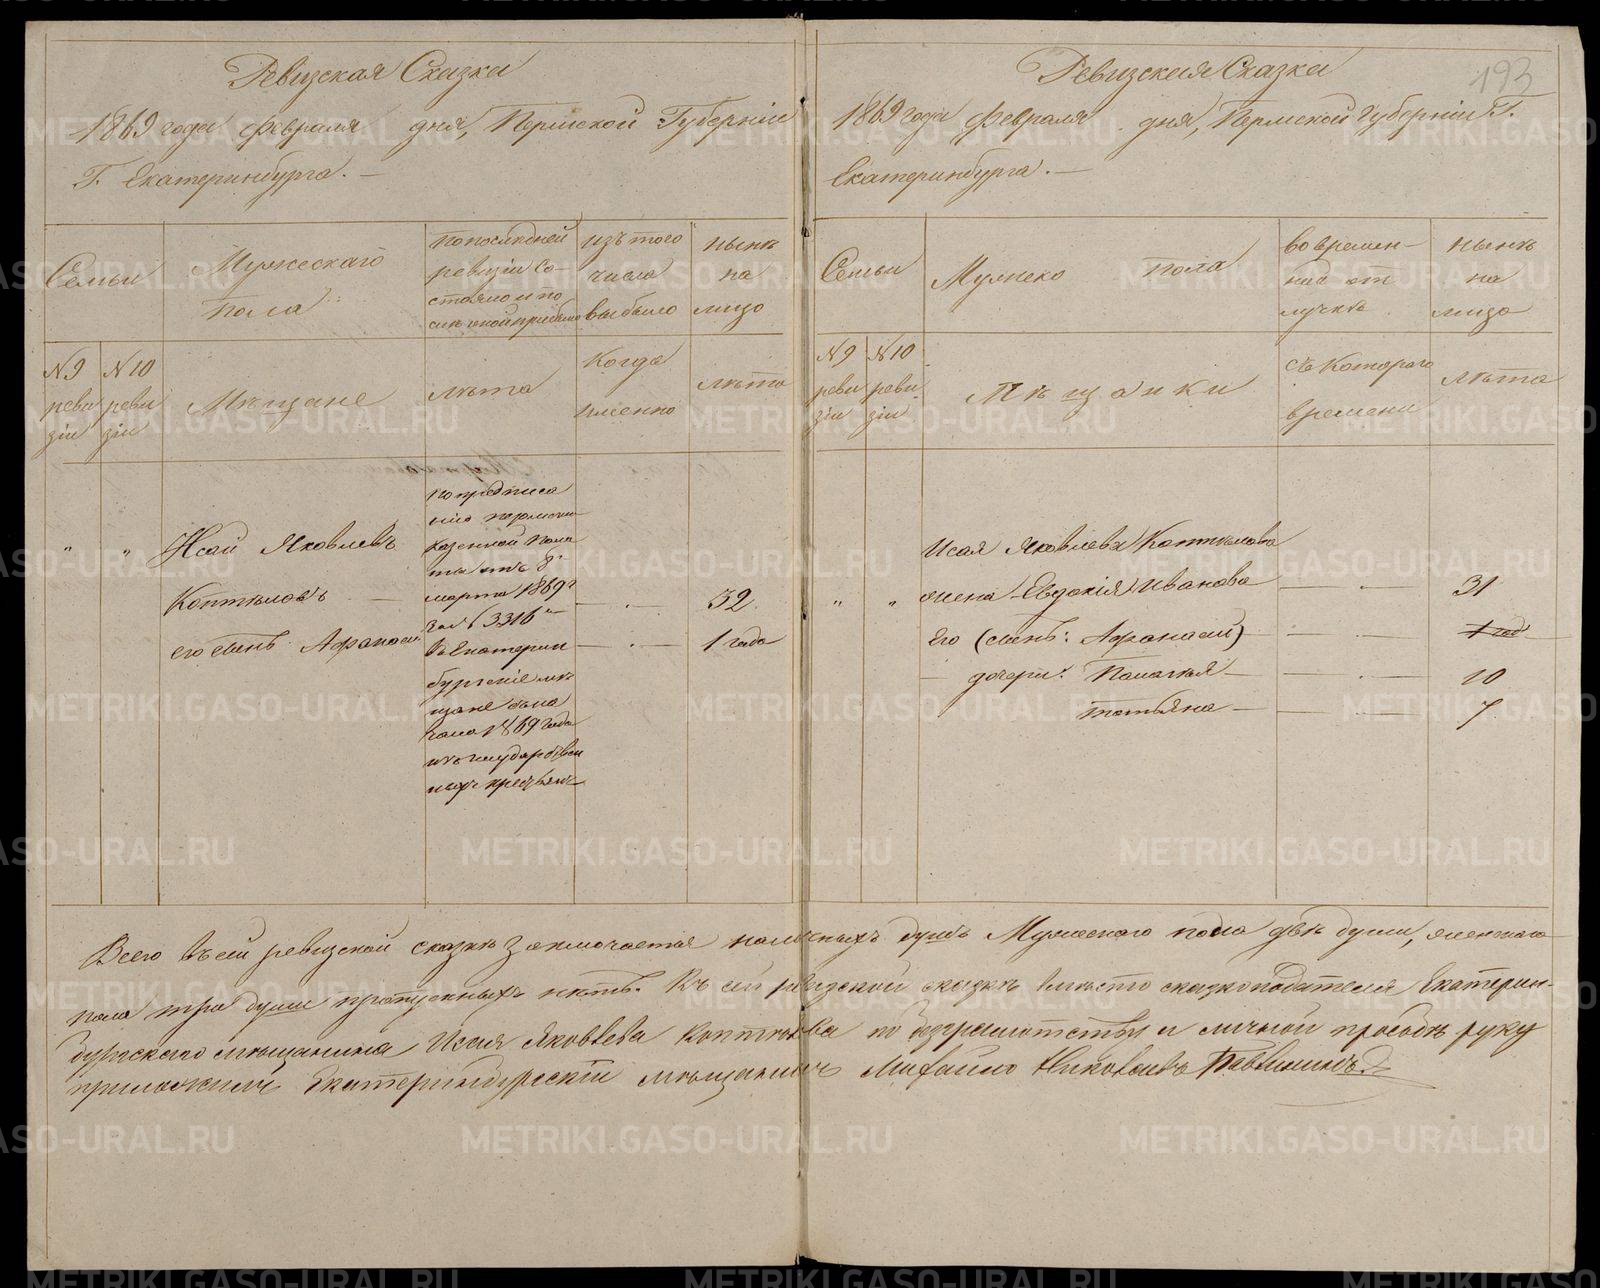 Ревизская Сказка
1869 года февраля дня, Пермской Губернии
Г. Екатеринбурга. —
Семьи
Мужескаго
Пола
по последней
ревизіи со-
стояло и по
сле оной прибыло
изъ того
числа
выбыло
ныне
на
лицо
№ 9
реви
зіи
№ 10
реви
зіи
Мѣщане
лѣта
Когда
именно
лѣта
" " Исай Яковлевъ
Коптѣловъ — 32
его сынъ Афанасій — 1 года
По предписа
нію Пермской
Казенной Пала
ты отъ 8
марта 1869 г
за № 3316
въ Екатерин
бургскіе мѣ
щане съ на
чала 1869 года
изъ государствен
ныхъ крестьянъ
193
Ревизская Сказка
1869 года февраля дня, Пермской Губерніи Г.
Екатеринбурга. —
Семьи
Мужеско пола
во времен-
ной от
лучкѣ
нынѣ
на
лицо
№ 9
реви
зіи
№ 10
реви
зіи
Мѣщанки
съ Котораго
времени
лѣта
Исая Яковлева Коптѣлова
" " жена Евдокія Иванова — 31
Его (сынъ: Афанасій) — 1 год
— дочери: Пелагія — 10
татьяна — 7
Всего въ сей ревизской сказкѣ заключается наличныхъ душъ Мужескаго пола двѣ души, женскаго
пола три души пропущенныхъ нетъ. Къ сей ревизской сказкѣ вместо сказкоподателя Екатерин-
бургскаго мѣщанина Исая Яковлева Коптелова по безграмотству и личной прозбѣ руку
приложилъ Екатеринбургскій мѣщанинъ Михайло Николаевъ
METRIKI.GASO-URAL.RU